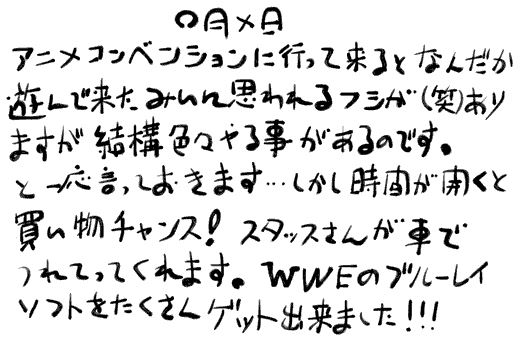 〇月×日
アニメコンベンションに行って来るとなんだか
遊んで来たみいに思われるフシが(笑)あり
ますが結構色々やる事があるのです。
と一応言っておきます…しかし時間が開くと
買い物チャンス！スタッスさんが車で
つれてってくれます。WWEのブルーレイ
ソフトをたくさんゲット出来ました!!!